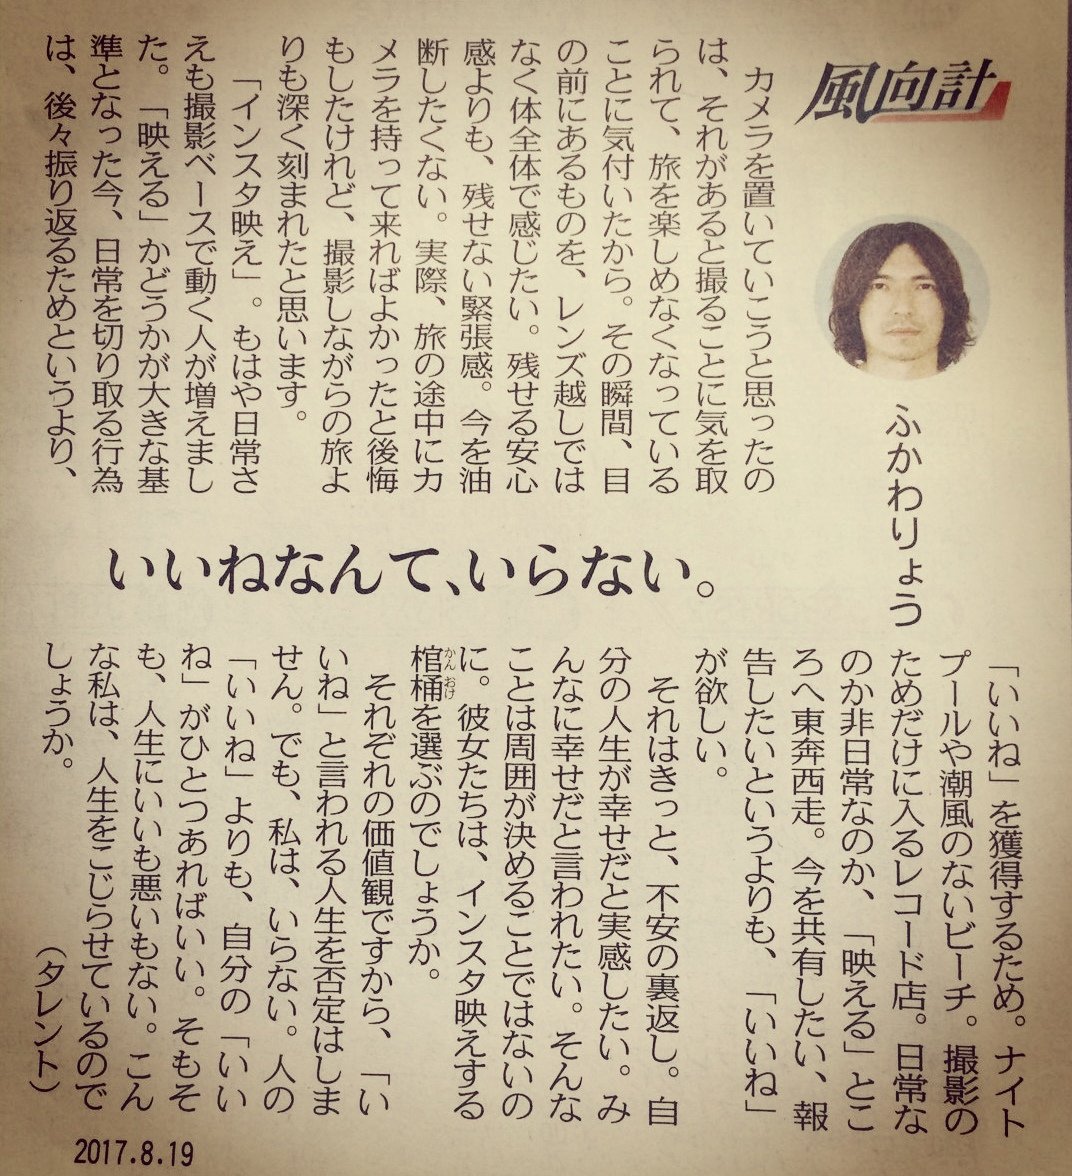 風向計
ふかわりょう
いいねなんて、いらない。
カメラを置いていこうと思ったの
は、それがあると撮ることに気を取
られて、旅を楽しめなくなっている
ことに気付いたから。その瞬間、目
の前にあるものを、レンズ越しでは
なく体全体で感じたい。残せる安心
感よりも、残せない緊張感。今を油
断したくない。実際、旅の途中にカ
メラを持って来ればよかったと後悔
もしたけれど、撮影しながらの旅よ
りも深く刻まれたと思います。
「インスタ映え」。もはや日常さ
えも撮影ベースで動く人が増えまし
た。「映える」かどうかが大きな基
準となった今、日常を切り取る行為
は、後々振り返るためというより、
「いいね」を獲得するため。ナイト
プールや潮風のないビーチ。撮影の
ためだけに入るレコード店。日常な
のか非日常なのか、「映える」とこ
ろへ東奔西走。今を共有したい、報
告したいというよりも、「いいね」
が欲しい。
それはきっと、不安の裏返し。自
分の人生が幸せだと実感したい。み
んなに幸せだと言われたい。そんな
ことは周囲が決めることではないの
に。彼女たちは、インスタ映えする
棺桶を選ぶのでしょうか。
かん おけ
それぞれの価値観ですから、「い
いね」と言われる人生を否定はしま
せん。でも、私は、いらない。人の
「いいね」よりも、自分の「いい
ね」がひとつあればいい。そもそ
も、人生にいいも悪いもない。こん
な私は、人生をこじらせているので
しょうか。
（タレント）
2017.8.19